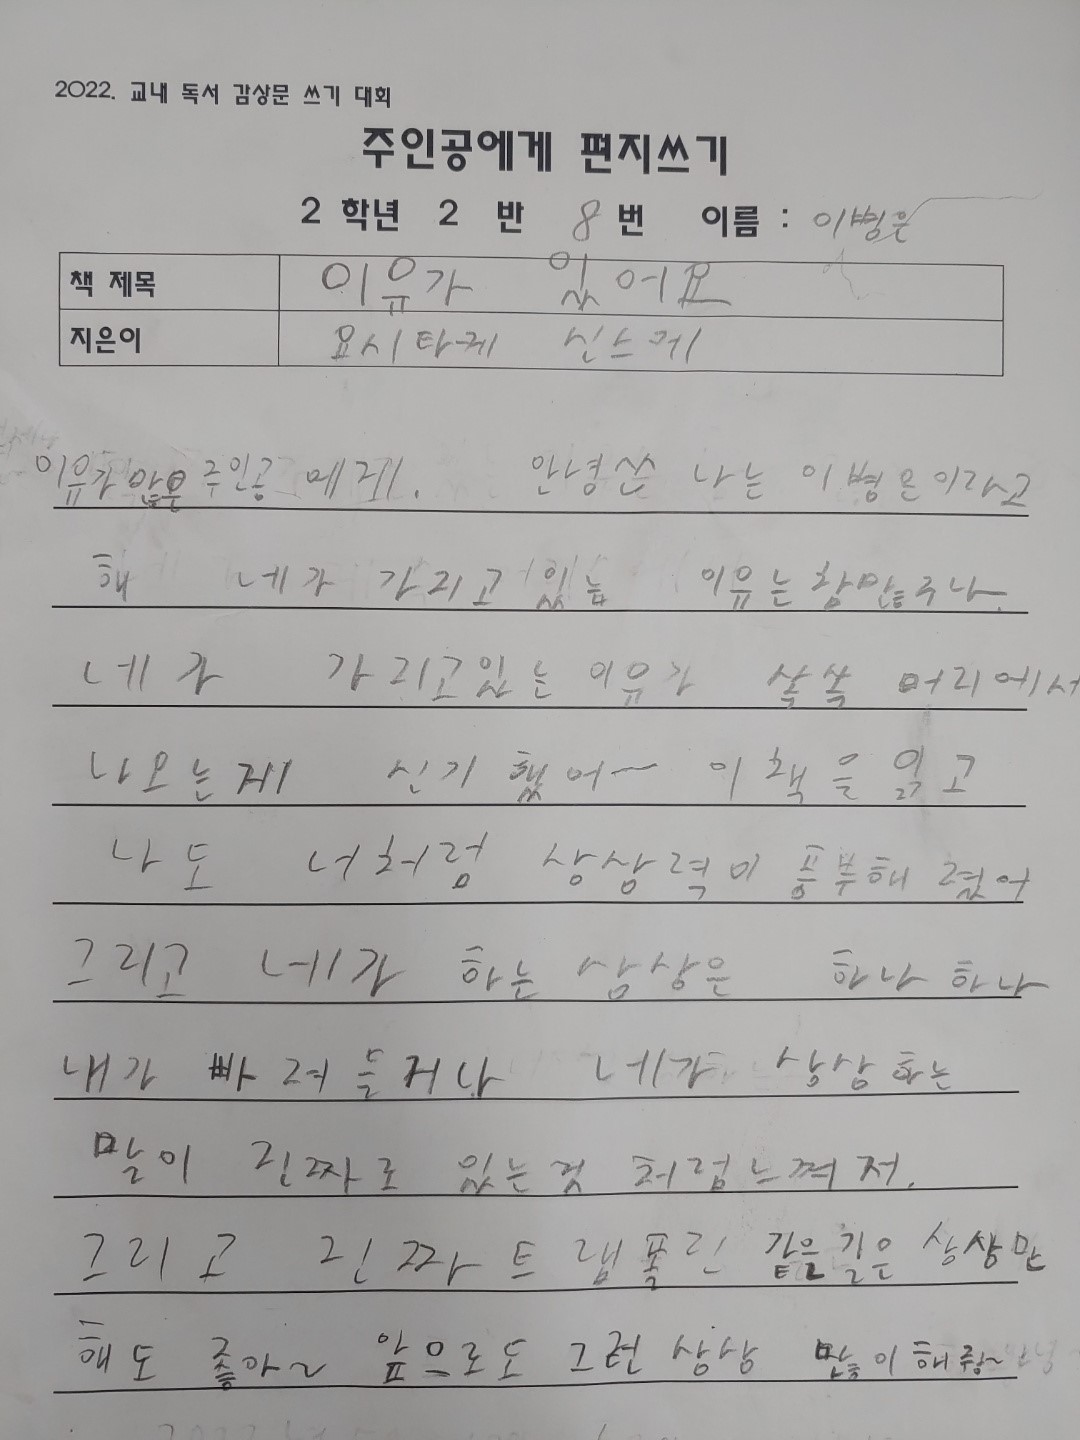 2022. 교내 독서 감상문 쓰기 대회
주인공에게 편지쓰기
2 학년 2 반 8 번 이름 : 이병은
책 제목 이유가 있어요
지은이 요시타케 신스케
이유가 많은 주인공 에게. 안녕 나는 이병은이라고
해 네가 가리고 있는 이유는 참 많구나.
네가 가리고있는 이유가 쏙쏙 머리에서
나오는게 신기 했어~ 이 책을 읽고
나도 너처럼 상상력이 풍부해 졌어
그리고 네가 하는 상상은 하나 하나
내가 빠져들거나 네가 상상하는
말이 진짜로 있는것 처럼느껴저.
그리고 진짜 트램폴린 같은길은 상상만
해도 좋아~ 앞으로도 그런 상상 많이해줘~